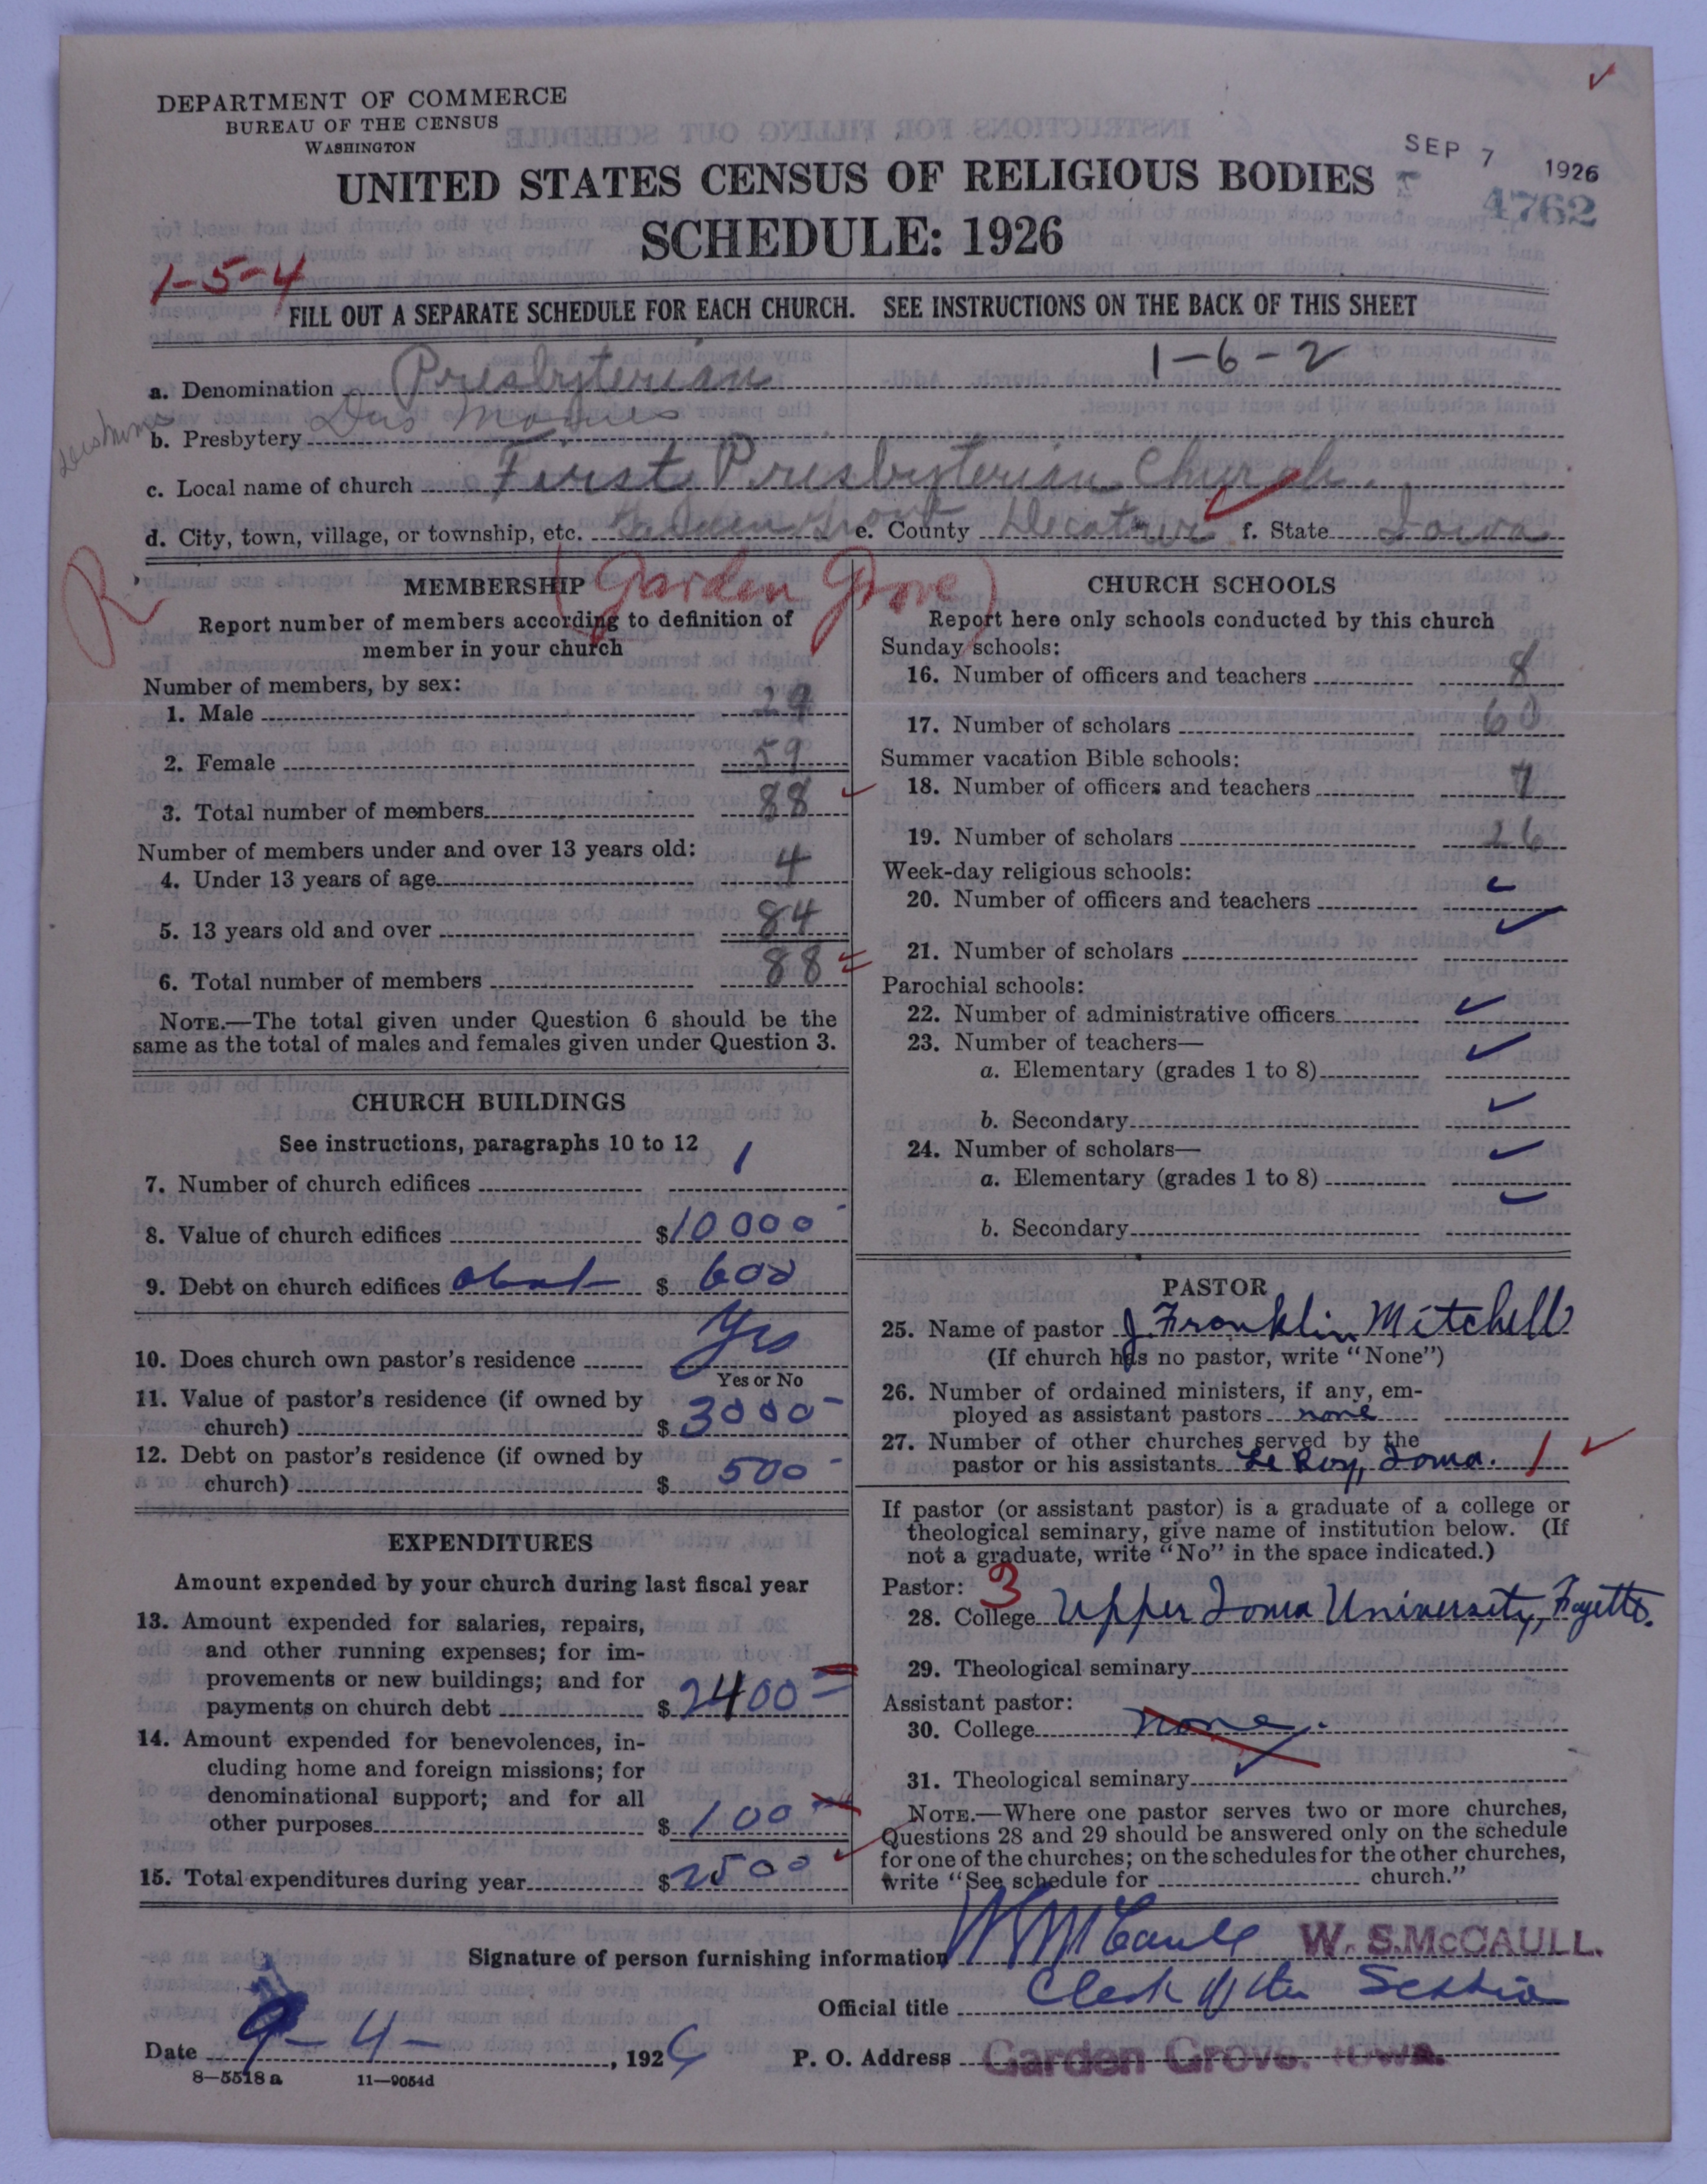 DEPARTMENT OF COMMERCE
BUREAU OF THE CENSUS
WASHINGTON
UNITED STATES CENSUS OF RELIGIOUS BODIES
SCHEDULE: 1926
SEP 7 1926
4762
1-5-4
FILL OUT A SEPARATE SCHEDULE FOR EACH CHURCH. SEE INSTRUCTIONS ON THE BACK OF THIS SHEET
1-6-2
a. Denomination Presbyterian
b. Presbytery Des Moines
c. Local name of church First Presbyterian Church.
d. City, town, village, or township, etc. Garden Grove e. County Decatur f. State Iowa
(Garden Grove)
R
MEMBERSHIP
Report number of members according to definition of
member in your church
Number of members, by sex:
1. Male 29
2. Female 59
3. Total number of members 88
Number of members under and over 13 years old:
4. Under 13 years of age 4
5. 13 years old and over 84
6. Total number of members 88
NOTE.—The total given under Question 6 should be the
same as the total of males and females given under Question 3.
CHURCH BUILDINGS
See instructions, paragraphs 10 to 12
7. Number of church edifices 1
8. Value of church edifices $10000-
9. Debt on church edifices about $ 600
10. Does church own pastor's residence Yes
Yes or No
11. Value of pastor's residence (if owned by
church) $ 3000-
12. Debt on pastor's residence (if owned by
church) $ 500-
EXPENDITURES
Amount expended by your church during last fiscal year
13. Amount expended for salaries, repairs,
and other running expenses; for im-
provements or new buildings; and for
payments on church debt $ 2400
14. Amount expended for benevolences, in-
cluding home and foreign missions; for
denominational support; and for all
other purposes $ 100
15. Total expenditures during year $2500
CHURCH SCHOOLS
Report here only schools conducted by this church
Sunday schools:
16. Number of officers and teachers 8
17. Number of scholars 60
Summer vacation Bible schools:
18. Number of officers and teachers 7
19. Number of scholars 26
Week-day religious schools:
20. Number of officers and teachers
21. Number of scholars
Parochial schools:
22. Number of administrative officers
23. Number of teachers—
a. Elementary (grades 1 to 8)
b. Secondary
24. Number of scholars—
a. Elementary (grades 1 to 8)
b. Secondary
PASTOR
25. Name of pastor J. Franklin Mitchell
(If church has no pastor, write "None")
26. Number of ordained ministers, if any, em-
ployed as assistant pastors none
27. Number of other churches served by the
pastor or his assistants Le Roy, Iowa. 1
If pastor (or assistant pastor) is a graduate of a college or
theological seminary, give name of institution below. (If
not a graduate, write "No" in the space indicated.)
Pastor: 3
28. College Upper Iowa University, Fayette.
29. Theological seminary
Assistant pastor:
30. College none.
31. Theological seminary
NOTE.—Where one pastor serves two or more churches,
Questions 28 and 29 should be answered only on the schedule
for one of the churches; on the schedules for the other churches,
write "See schedule for church."
Signature of person furnishing information W S McCaull W. S. McCAULL.
Official title Clerk of the Session
Date 9-4-, 1926 P. O. Address Garden Grove, Iowa.
8—5518 a 11—9054d